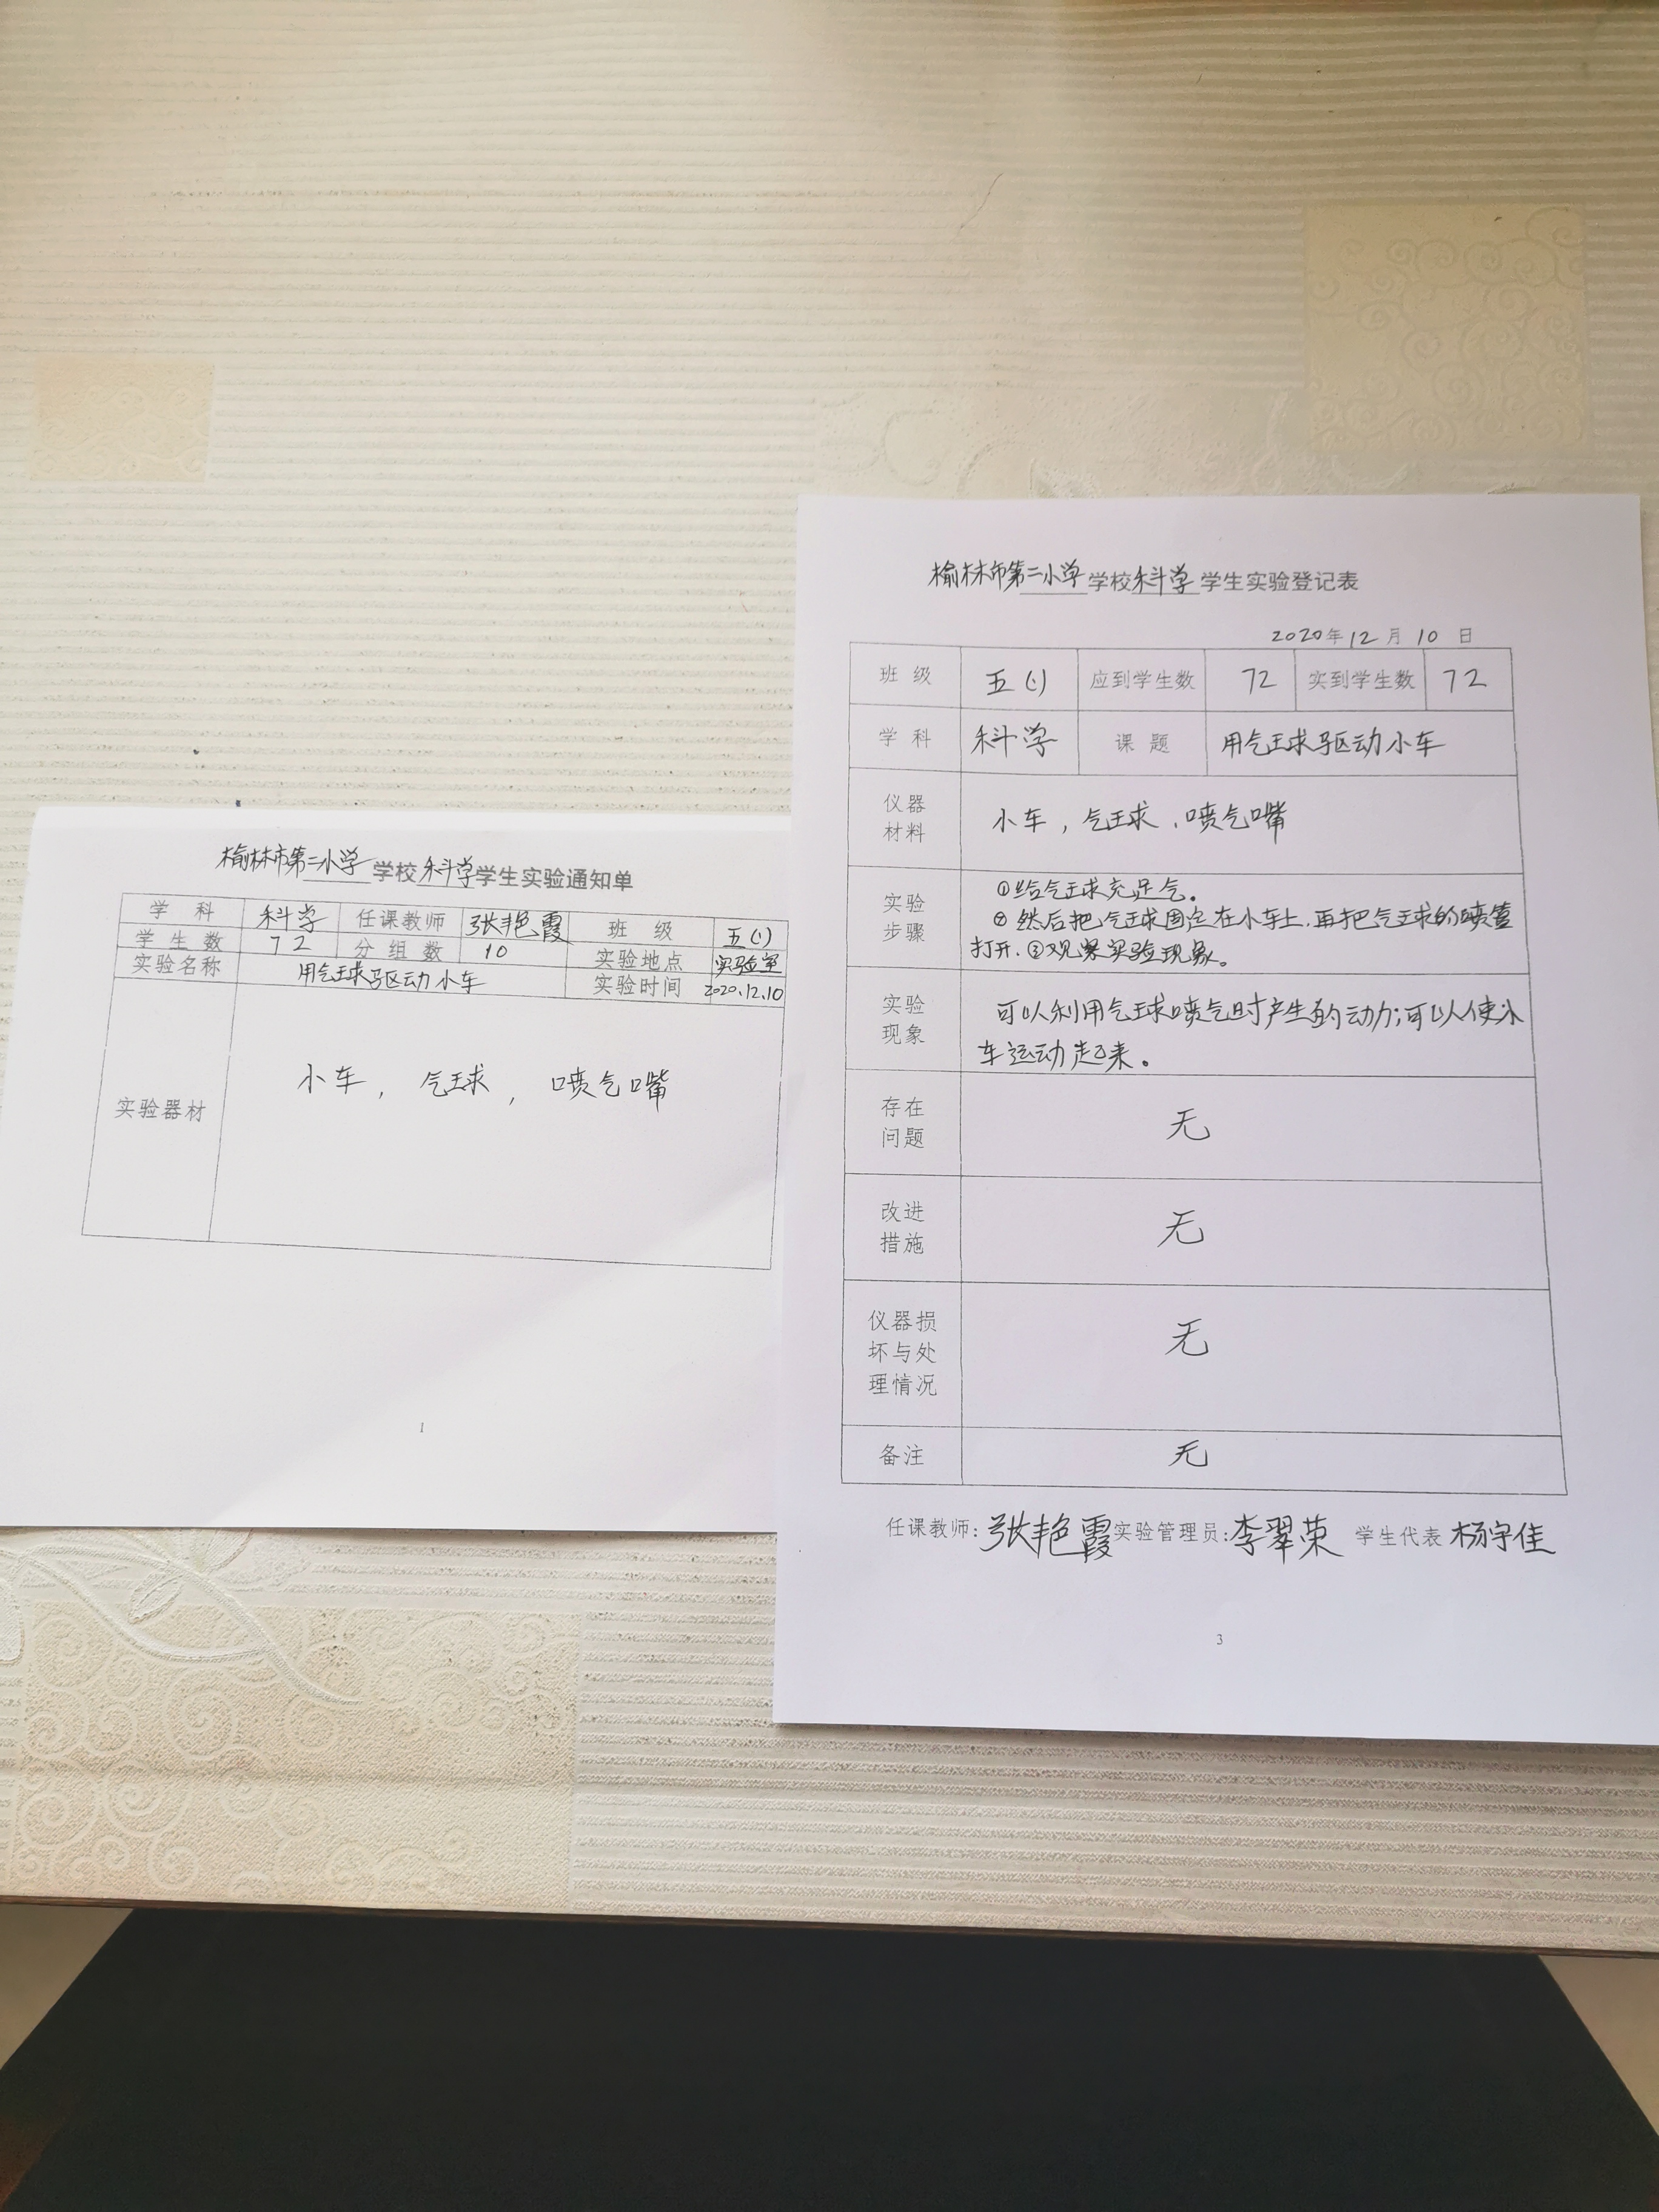 榆林市第二小学学校科学学生实验通知单
学 科 科学 任课教师 张艳霞 班 级 五(1)
学生数 72 分组数 10 实验地点 实验室
实验名称 用气球驱动小车 实验时间 2020.12.10
实验器材 小车, 气球, 喷气嘴
1
榆林市第二小学学校科学学生实验登记表
2020年12月10日
班 级 五(1) 应到学生数 72 实到学生数 72
学 科 科学 课 题 用气球驱动小车
仪器
材料
小车,气球,喷气嘴
实验
步骤
①给气球充足气。
②然后把气球固定在小车上,再把气球的喷管
打开.③观察实验现象。
实验
现象
可以利用气球喷气时产生的动力;可以使小
车运动起来。
存在
问题
无
改进
措施
无
仪器损
坏与处
理情况
无
备注 无
任课教师:张艳霞 实验管理员:李翠荣 学生代表 杨宇佳
3